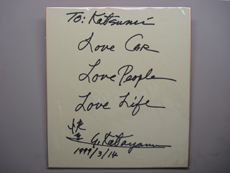 To: Katsumi
Love Car
Love People
Love Life
G. Katayama
1999/3/14